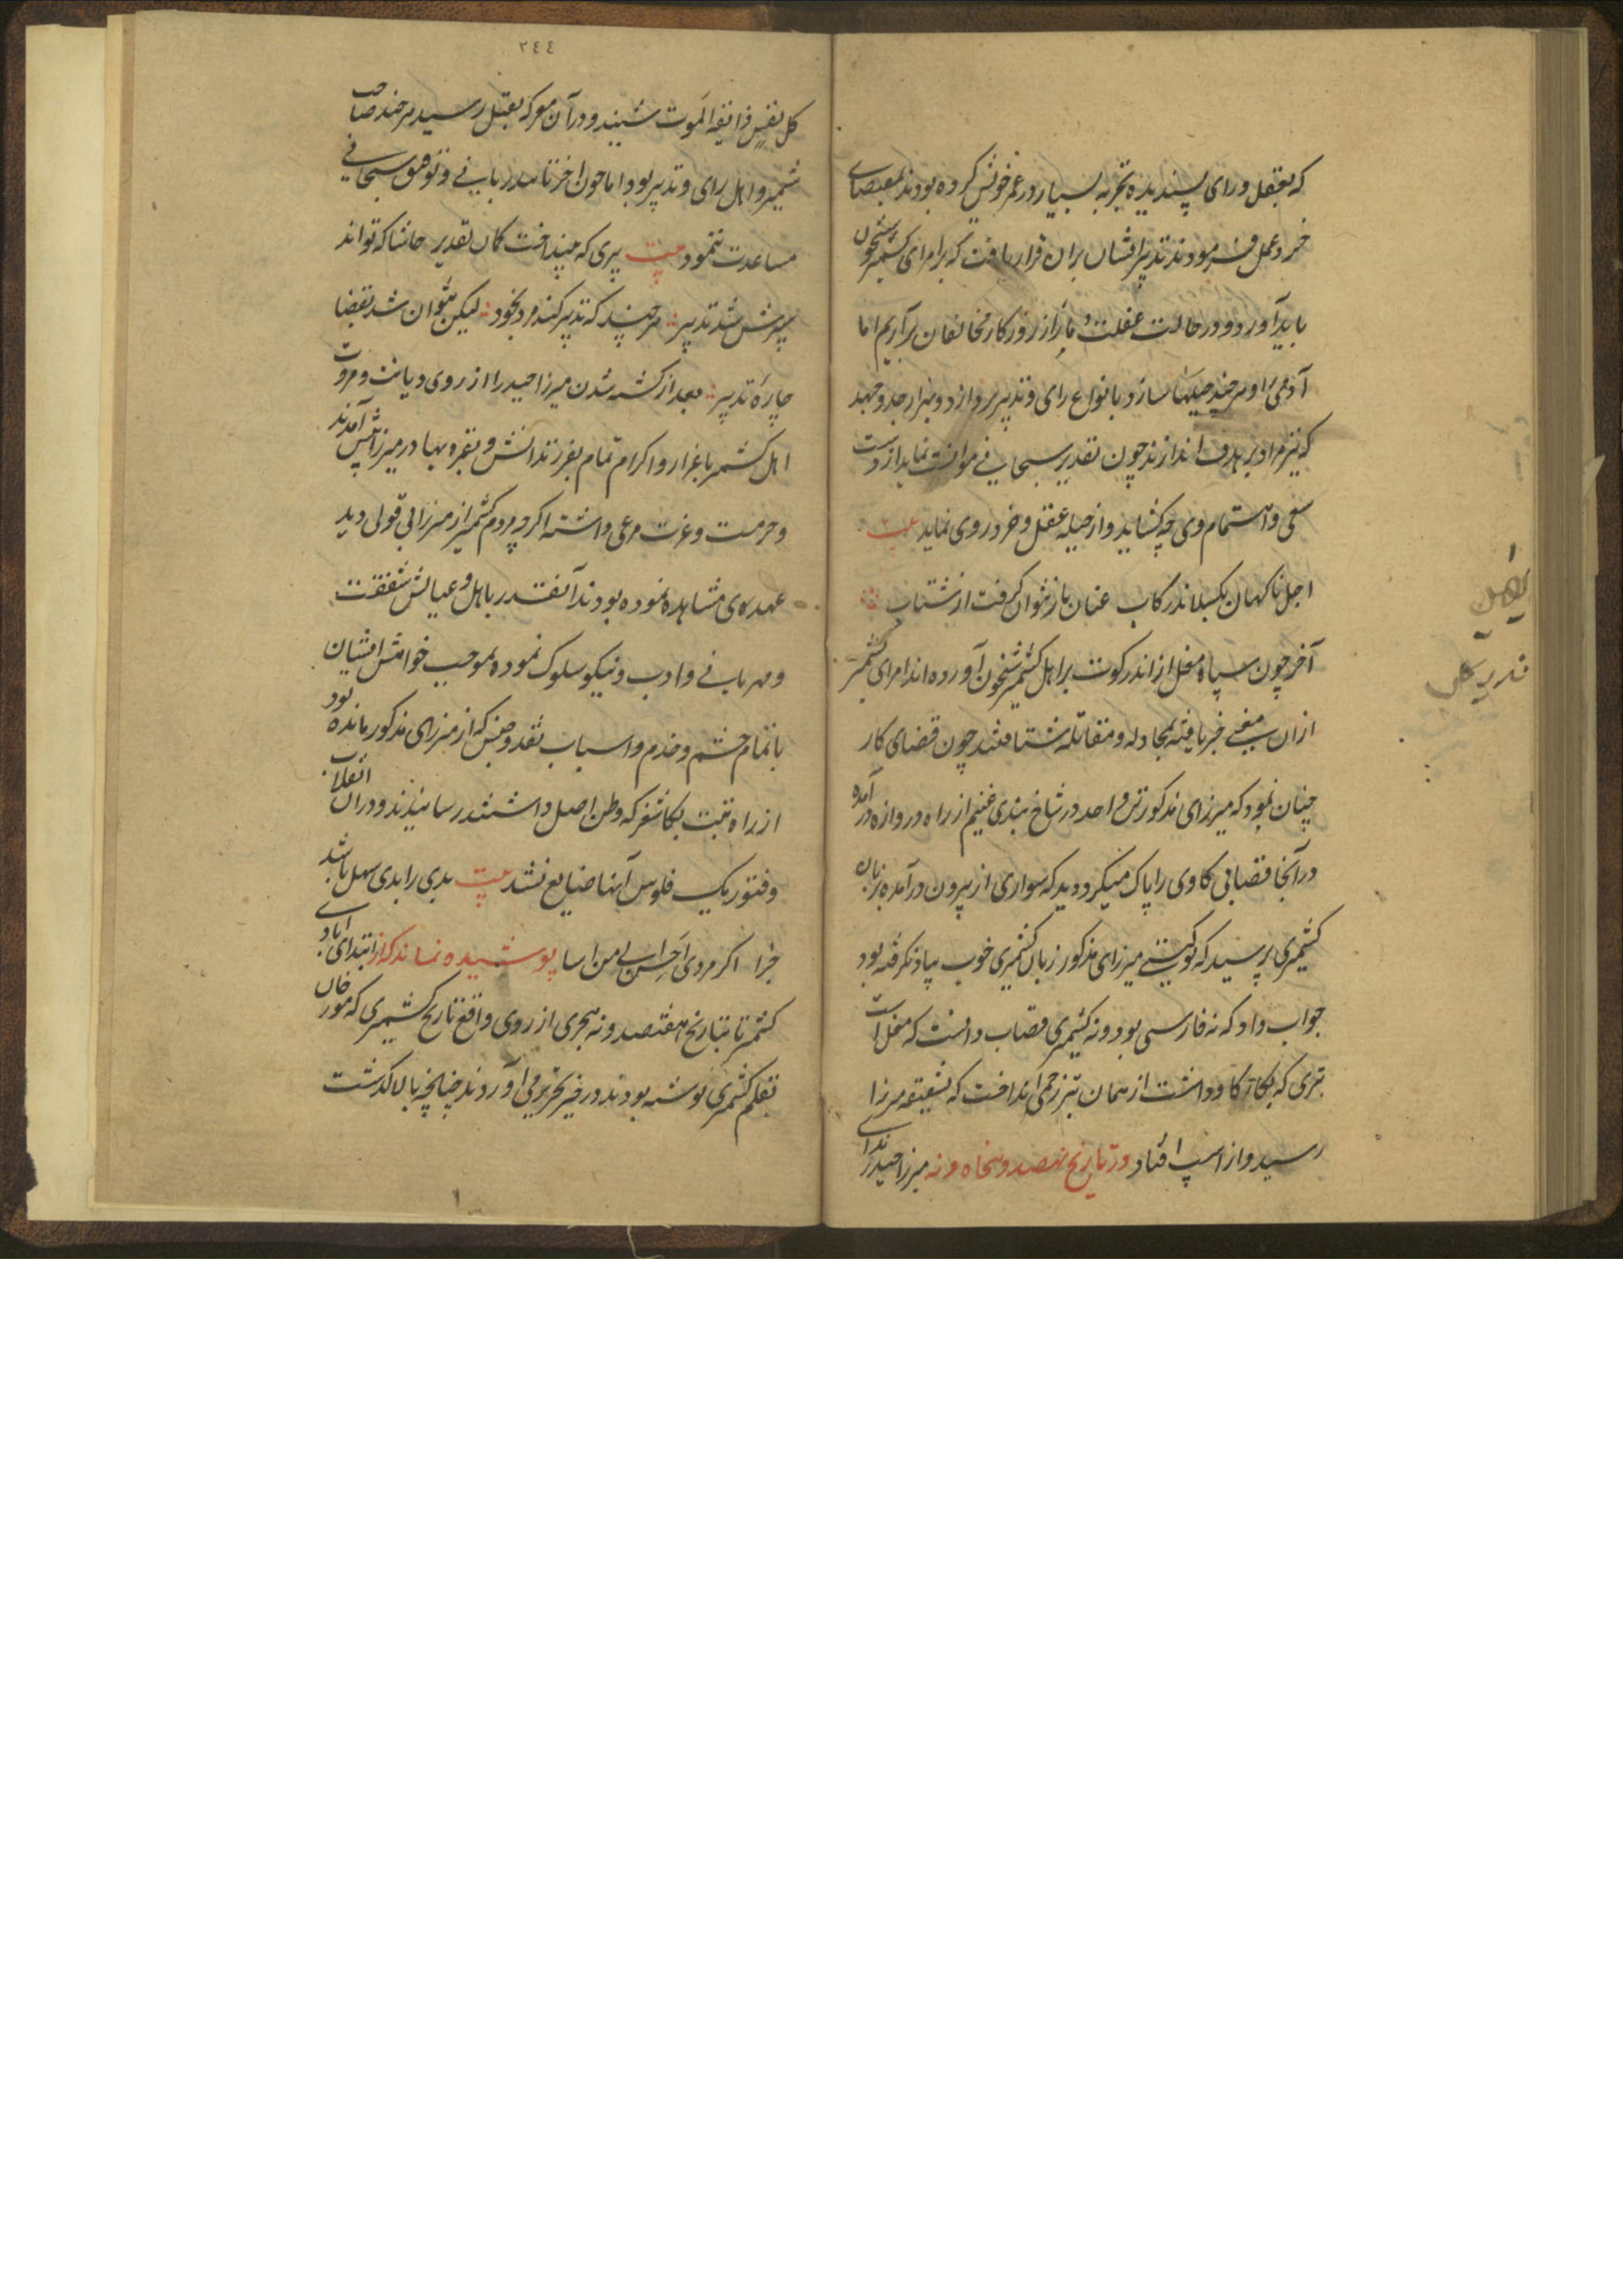 که بعقل و رای پسندیده تجربه بسیار در عمر خویش کرده بودند بمقتضای
خرد عمل فرمودند تدبیر ایشان بران قرار یافت که بر امرای کشمیر شبخون
باید آورد و در حالت غفلت دمار از روزکار مخالفان برآریم اما
آدمی را هرچند حیلها سازد و بانواع رای و تدبیر پردازد و بهزار جد و جهد
که تیر مراد بر هدف اندازند چون تقدیر سبحانی موافقت ننماید از دست
سعی و اهتمام وی چه کشاید و از حیله عقل و خرد روی نماید بیت
اجل ناکهان بکسلاند رکاب عنان باز نتوان کرفت از شتاب
آخر چون سپاه مغل از اندرکوت بر اهل کشمیر شبخون آورده اند امرای کشمیر
ازان معنی خبر یافته بمجادله و مقاتله شتافتند چون قضای کار
چنان نمود که میرزای مذکور تن واحد در شاخ بندی غنیم از راه دروازه درآمده
درآنجا قصابی کاوی را پاک میکرد دید که سواری از بیرون درآمده بزبان
کشمیری پرسید که توکیستی میرزای مذکور زبان کشمیری خوب بیاد نکرفته بود
جواب داد که نه فارسی بود و نه کشمیری قصاب دانست که مغل است
تبری که بکار کاو داشت از همان تبر زخمی انداخت که بشقیقه میرزا
رسید و از اسپ افتاد و در تاریخ نهصد و پنجاه و نه میرزا حیدر ندای
٢٤٤
کل نفس ذائقة الموت شنید و درآن معرکه بقتل رسید هرچند صاحب
شمشیر و اهل رای و تدبیر بود اما چون اختر تائید ربانی و توفیق سبحانی
مساعدت ننمود بیت تیری که بینداخت کمان تقدیر حاشا که تواند
سپرش شد تدبیر هرچند که تدبیر کند مرد بخود لیکن نتوان شد بقضا
چارهٔ تدبیر بعد از کشته شدن میرزا حیدر را از روی دیانت و مروت
اهل کشمیر باعزاز و اکرام تمام بفرزندانش و بقره بهادر میرزا پیش آمدند
و حرمت و عزت مرعی داشته اکرچه مردم کشمیر از میرزا بی قولی و بد
عهدی مشاهده نموده بودند آنقدر باهل و عیالش شفقت
و مهربانی و ادب و نیکو سلوک نموده بموجب خواهش ایشان
با تمام حشم و خدم و اسباب نقد و جنس که از میرزای مذکور مانده بود
از راه تبت بکاشغر که وطن اصل داشتند رسانیدند و دران انقلاب
و فتور یک فلوس آنها ضایع نشد بیت بدی را بدی سهل باشد
جزا اکر مردی احسن الی من اسا پوشیده نماند که از ابتدای آبادی
کشمیر تا بتاریخ هفتصد و نه هجری از روی واقع تاریخ کشمیری که مورخان
بقلم کشمیری نوشته بودند در خیر تحریر می آوردند چنانچه بالا کذشت